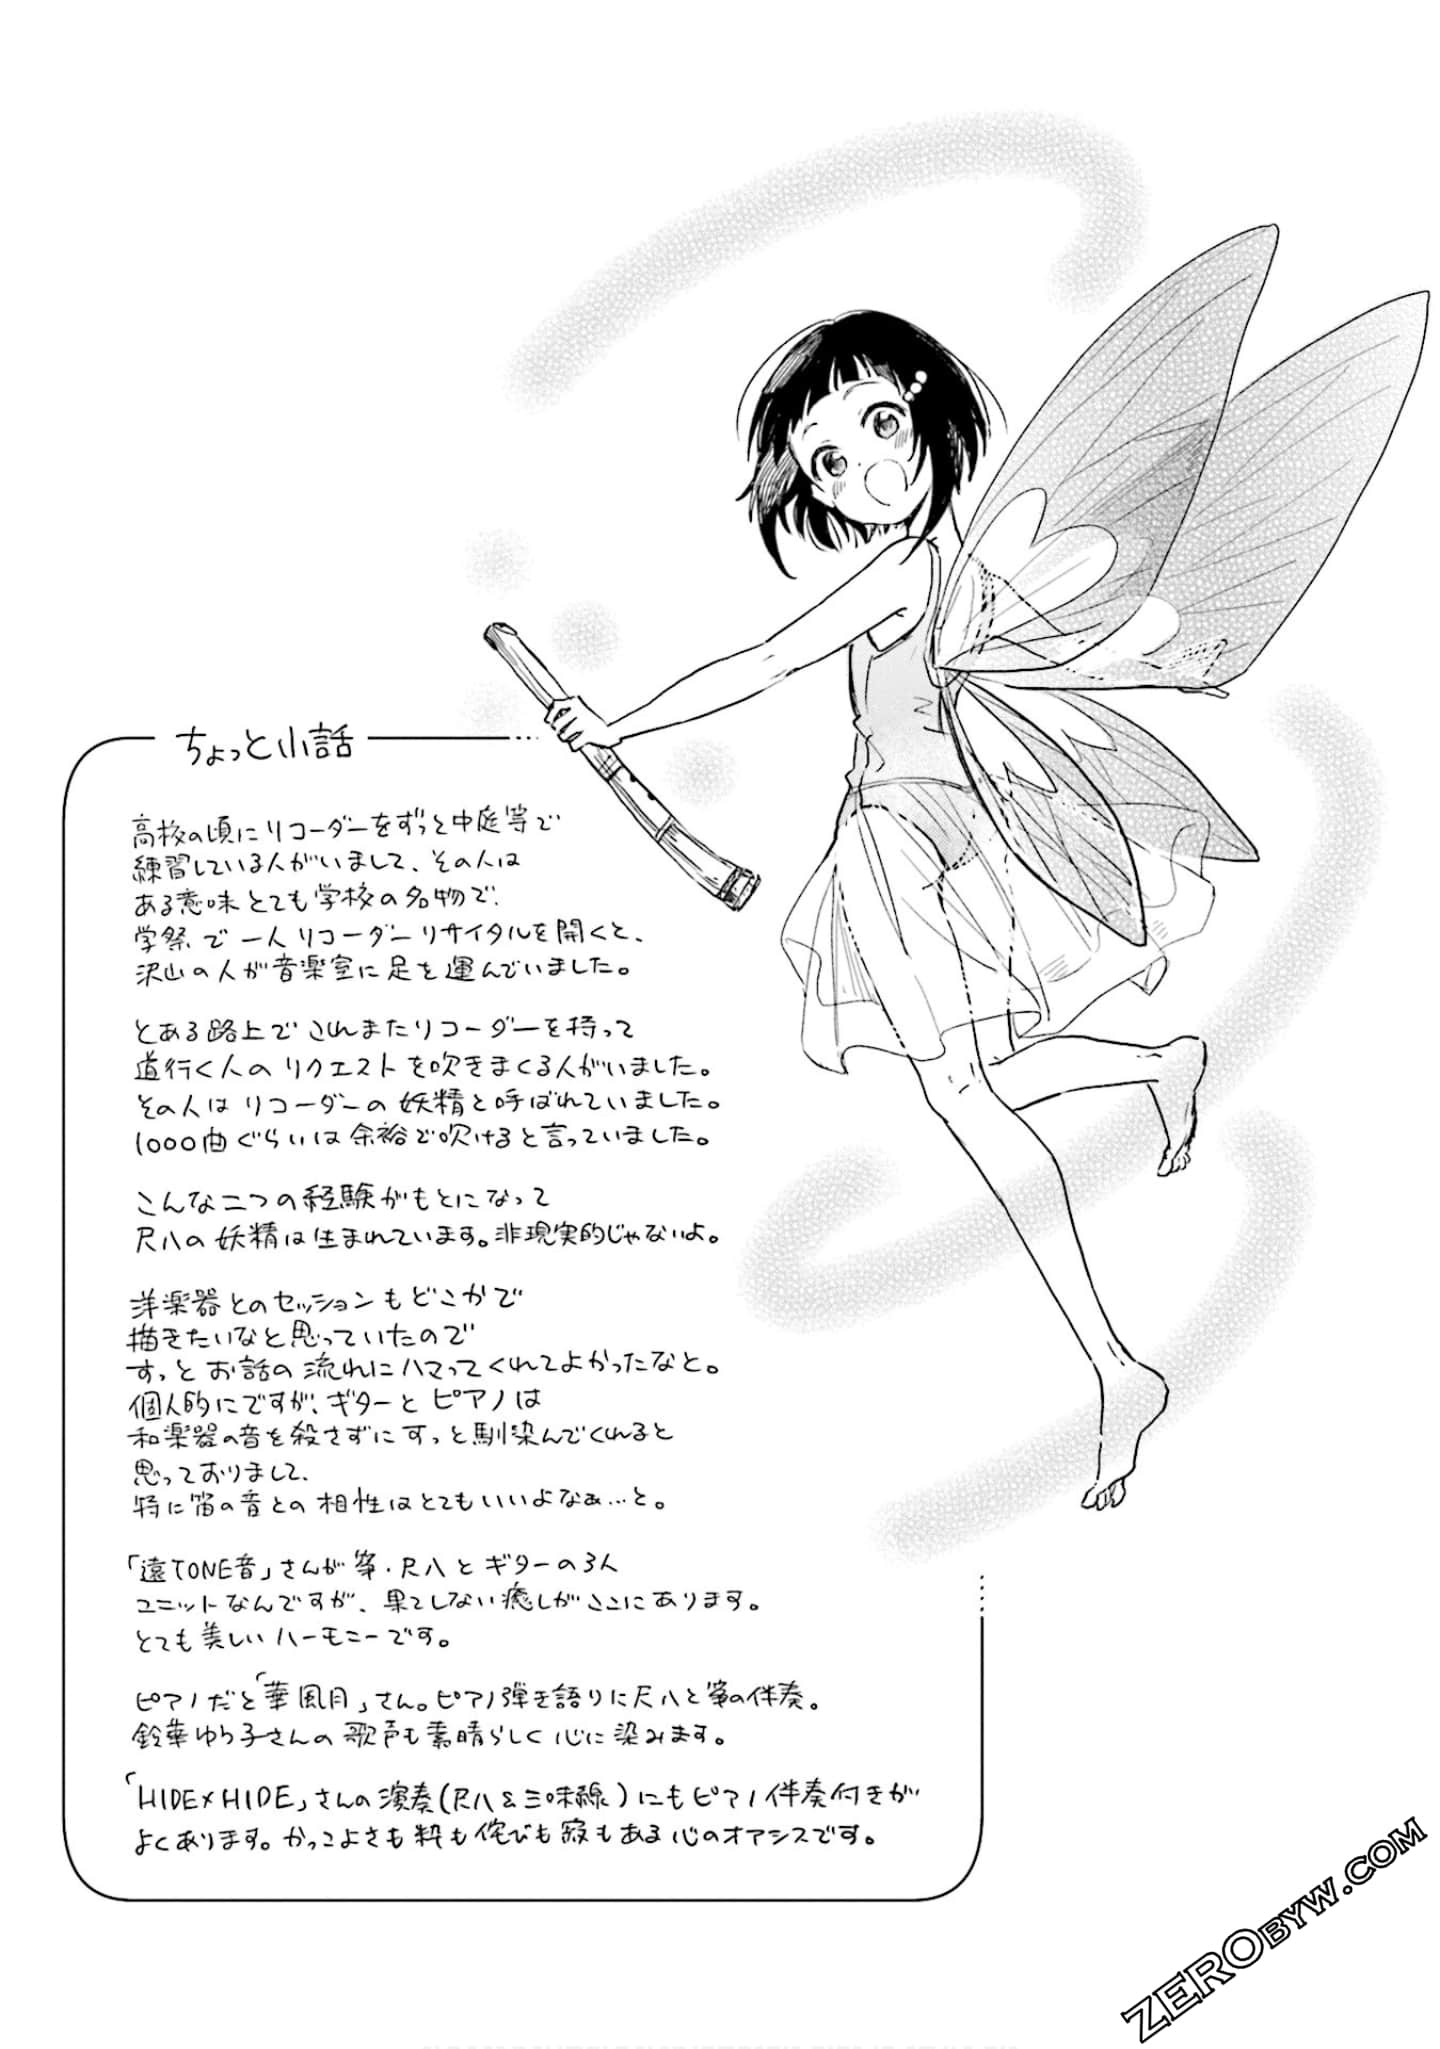 ちょっと小話
高校の頃にリコーダーをずっと中庭等で
練習している人がいまして、その人は
ある意味とても学校の名物で、
学祭で一人リコーダーリサイタルを開くと、
沢山の人が音楽室に足を運んでいました。
とある路上でこれまたリコーダーを持って
道行く人のリクエストを吹きまくる人がいました。
その人はリコーダーの妖精と呼ばれていました。
1000曲ぐらいは余裕で吹けると言っていました。
こんな二つの経験がもとになって
尺八の妖精は生まれています。非現実的じゃないよ。
洋楽器とのセッションもどこかで
描きたいなと思っていたので
すっとお話の流れにハマってくれてよかったなと。
個人的にですが、ギターとピアノは
和楽器の音を殺さずにすっと馴染んでくれると
思っておりまして、
特に笛の音との相性はとてもいいよなぁ…と。
「遠TONE音」さんが箏・尺八とギターの3人
ユニットなんですが、果てしない癒しがここにあります。
とても美しいハーモニーです。
ピアノだと「華風月」さん。ピアノ弾き語りに尺八と箏の伴奏。
鈴華ゆう子さんの歌声も素晴らしく心に染みます。
「HIDE×HIDE」さんの演奏(尺八&三味線)にもピアノ伴奏付きが
よくあります。かっこよさも粋も侘びも寂もある心のオアシスです。
ZEROBYW.COM